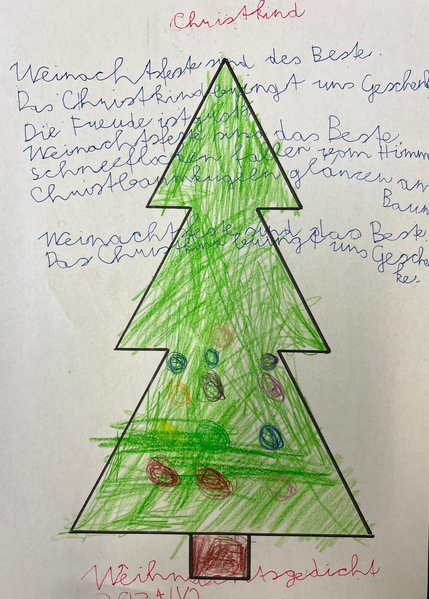 Christkind
Weinachtsfeste sind des Beste.
Das Christkind bringt uns Geschen
Die Freude ist
Weinachtsfeste sind das Beste,
Schneeflocken fallen vom Himm
Christbaumkugeln glänzen am
Baum
Weinachtsfeste sind das Beste
Das Christkind bringt uns Gesche
ke.
Weihnachtsgedicht